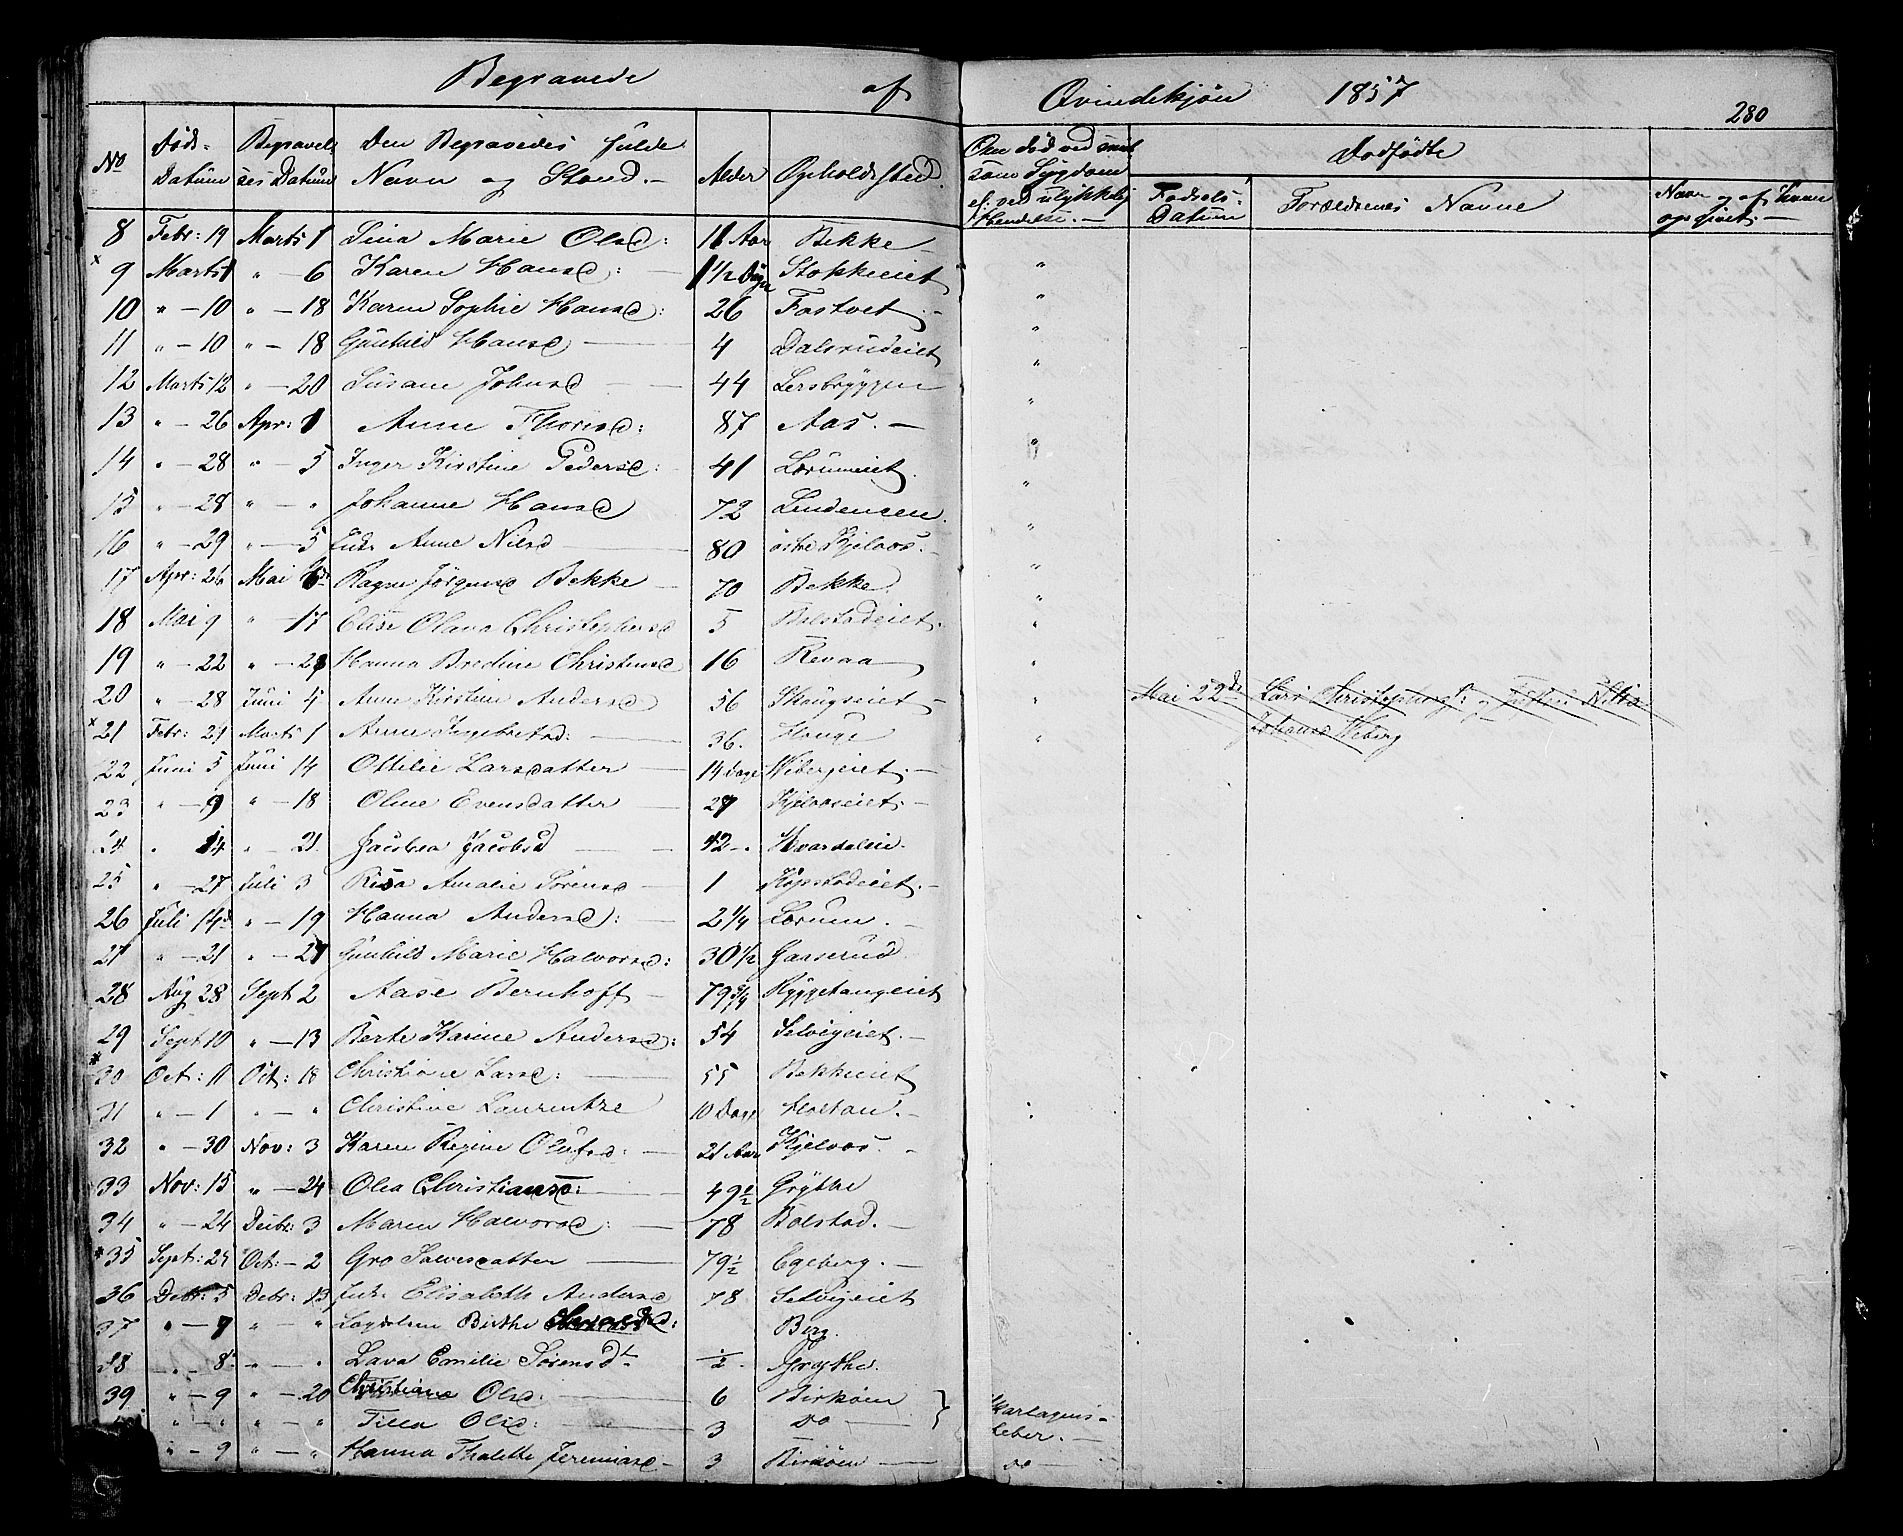 Begravede af Qvindekjön 1857
280
No Döds-Datum Begravelses Datum Den Begravedes fulde Navn og Stand. Alder Opholdssted. Om död ved smitsom Sygdom el: ved ulykkelig Hendelse. Dödfödte
Födsels-Datum Forældrenes Navne
8 Febr: 19 Marts 1 Lina Marie Olsd: 11 Aar Bekke
9 Marts 1 " 6 Karen Hansd: 1 1/2 Stokkeeiet
10 " 10 " 18 Karen Sophie Hansd: 26 Fostvet
11 " 10 " 18 Gunhild Hansd 4 Dalsrudeiet
12 Marts 12 " 20 Susane Johnsd 44 Lersbryggen
13 " 26 Apr: 1 Anne Thorsd: 87 Aas.
14 " 28 " 5 Inger Kirstine Pedersd: 41 Lorumeiet.
15 " 28 " " Johanne Hansd 72
16 " 29 " 5 Anne Nilsd 80 östre Kjelaas.
17 Apr: 26 Mai Ragne Jörgensd Bekke 70 Bekke
18 Mai 9 " 17 Elise Olava Christophersd 5 Bolstadeiet.
19 " 22 " Hanna Bredine Christensd 16 Revaa
20 " 28 Juni 4 Anne Kirstine Andersd 56 Skougseiet " Mai 22de Lars
21 Febr: 21 Marts 1 Anne Ingebretsd: 36. Hauge " Johannes Weberg
22 Juni 5 Juni 14 Ottilie Larsdatter 14 Dage Webergeiet.
23 " 9 " 18 Oline Evensdatter 27 Kjelaaseiet.
24 " 14 " 21 Jacobea Jacobsd Hvardaleie.
25 " 27 Juli 3 Risa Amalie Sörensd 1 Kopstadeiet.
26 Juli 14d " 19 Hanna Andersd: 2 1/4 Lorum.
27 " 21 " 27 Gunhild Marie Halvorsd: 30 1/2 Gaaserud
28 Aug 28 Sept 2 Aase Bernhoff 79 3/4 Ryggetangeiet
29 Sept 10 " 13 Berte Karine Andersd: 54 Selvigeiet.
30 Oct: 11 Oct: 18 Christiane Larsd: 55 Bekkeeiet
31 " 1 " " Christine Laurentze 10 Dage
32 " 30 Nov: 3 Karen Regine Olufsd: 21 Aar Kjelaas.
33 Nov: 15 " 24 Olea Christiansd: 49 1/2 Grythe
34 " 24 Decbr: 3 Maren Halvorsd: 78 Bolstad.
35 Sept: 25 Oct: 2 Gro Salvesdatter 79 1/2 Egeberg.
36 Debr: 5 Debr: 13 Elisabeth Andersd 78 Selvigeiet
37 " 7 " " Birthe Berg.
38 " 8 " " Lava Emilie Sörensdt 1/2 Grythe.
39 " 9 " 20 Christiane Olsd: 6 Birköen Skarlagens-
" " " " Tilla Olsd: 3 do feber.
" 9 " " Hanna Thalette Jeremiasd 3 Birköen do